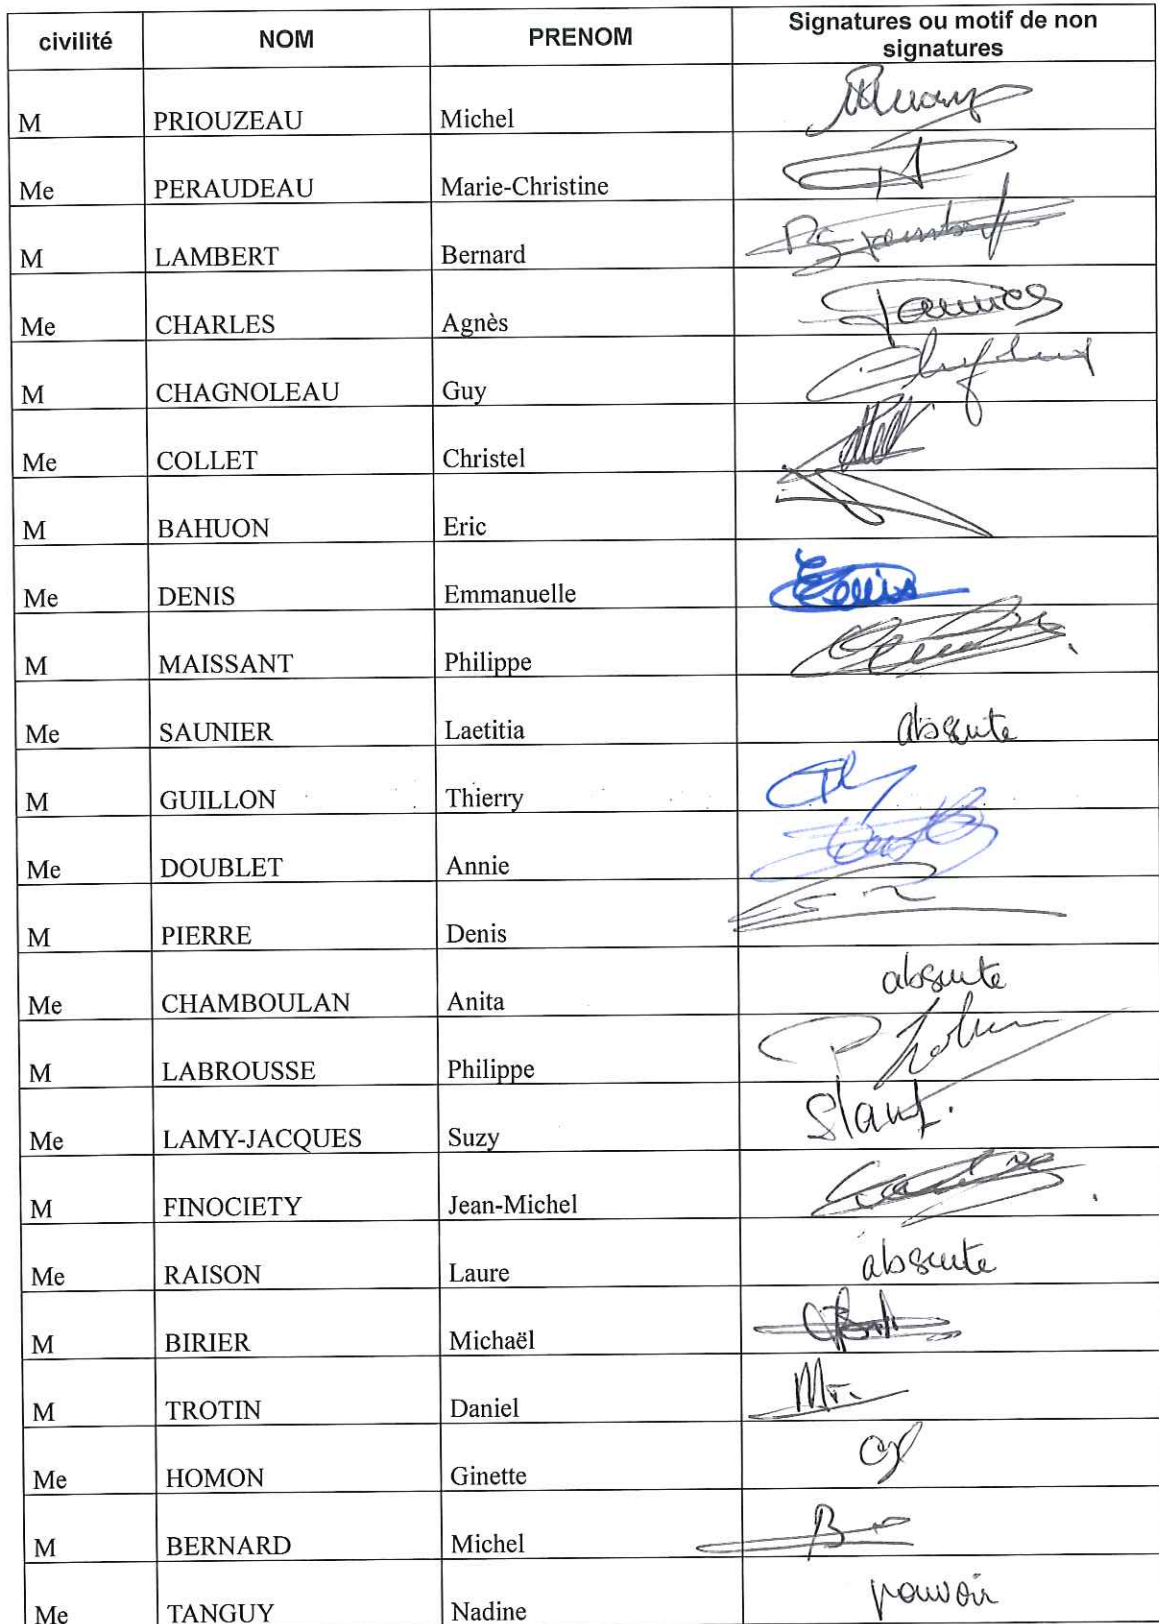 civilité NOM PRENOM Signatures ou motif de non
signatures
M PRIOUZEAU Michel
Me PERAUDEAU Marie-Christine
M LAMBERT Bernard
Me CHARLES Agnès
M CHAGNOLEAU Guy
Me COLLET Christel
M BAHUON Eric
Me DENIS Emmanuelle
M MAISSANT Philippe
Me SAUNIER Laetitia absente
M GUILLON Thierry
Me DOUBLET Annie
M PIERRE Denis
Me CHAMBOULAN Anita absente
M LABROUSSE Philippe
Me LAMY-JACQUES Suzy
M FINOCIETY Jean-Michel
Me RAISON Laure absente
M BIRIER Michaël
M TROTIN Daniel
Me HOMON Ginette
M BERNARD Michel
Me TANGUY Nadine pouvoir